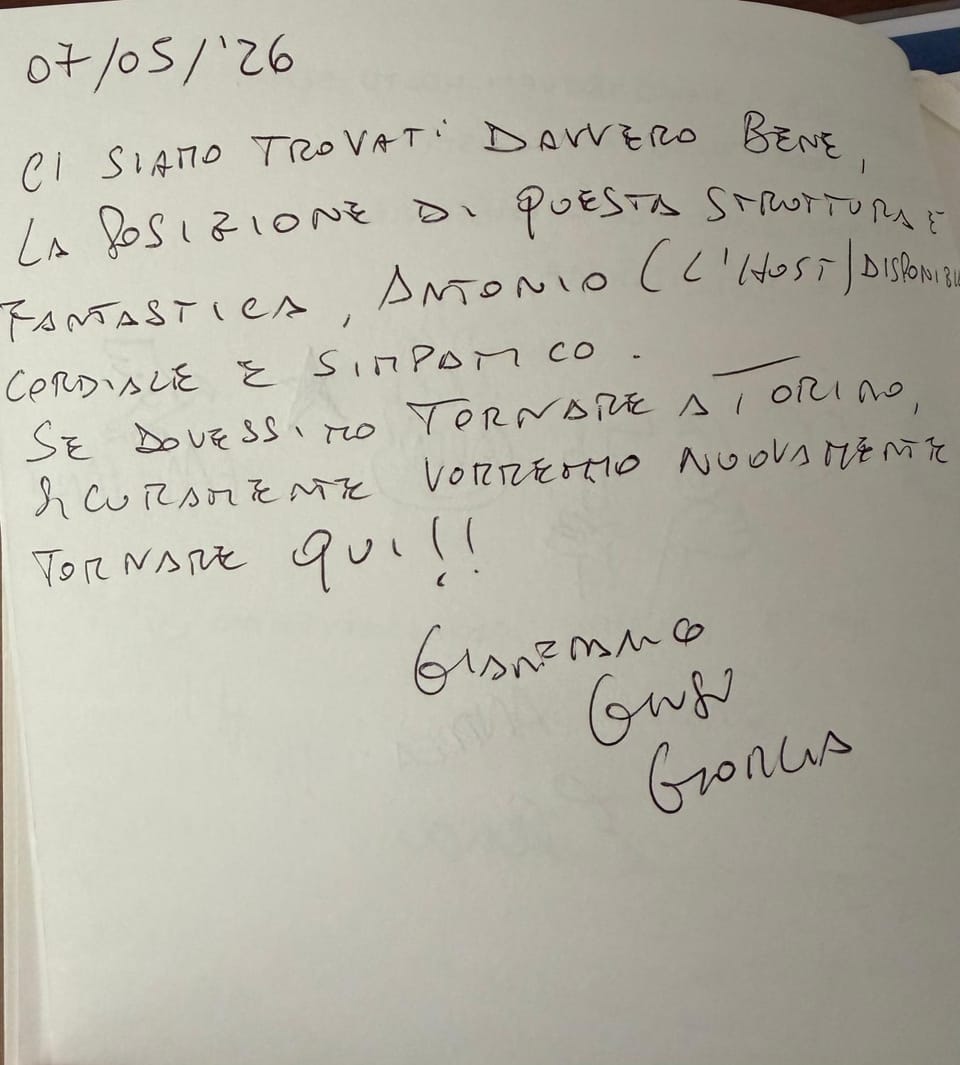 07/05/'26
CI SIAMO TROVATI DAVVERO BENE,
LA POSIZIONE DI QUESTA STRUTTURA E
FANTASTICA, ANTONIO (L'HOST) DISPONIBIL
CORDIALE E SIMPATICO.
SE DOVESSIMO TORNARE A TORINO,
SICURAMENTE VORREMMO NUOVAMENTE
TORNARE QUI!!
GIORGIA